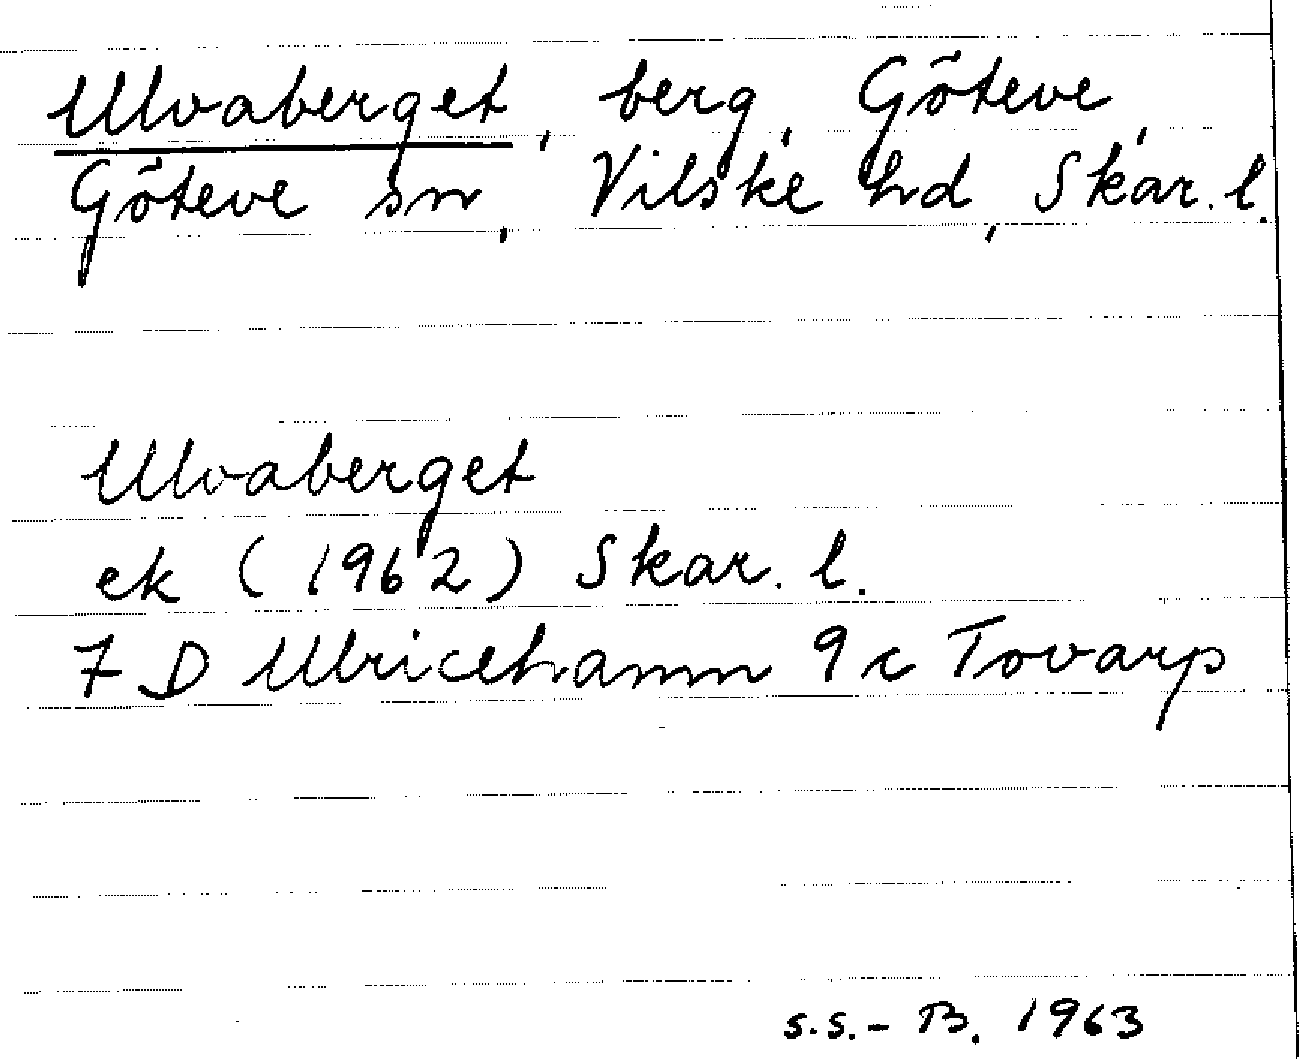 Ulvaberget, berg, Göteve,
Göteve sn, Vilske hd, Skar. l.
Ulvaberget
ek (1962) Skar. l.
7 D Ulricehamn 9 c Tovarp
s.s.-B. 1963